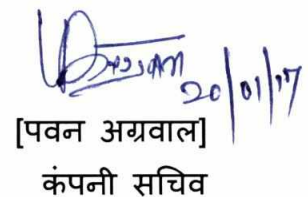 20/01/17
[पवन अग्रवाल]
कंपनी सचिव